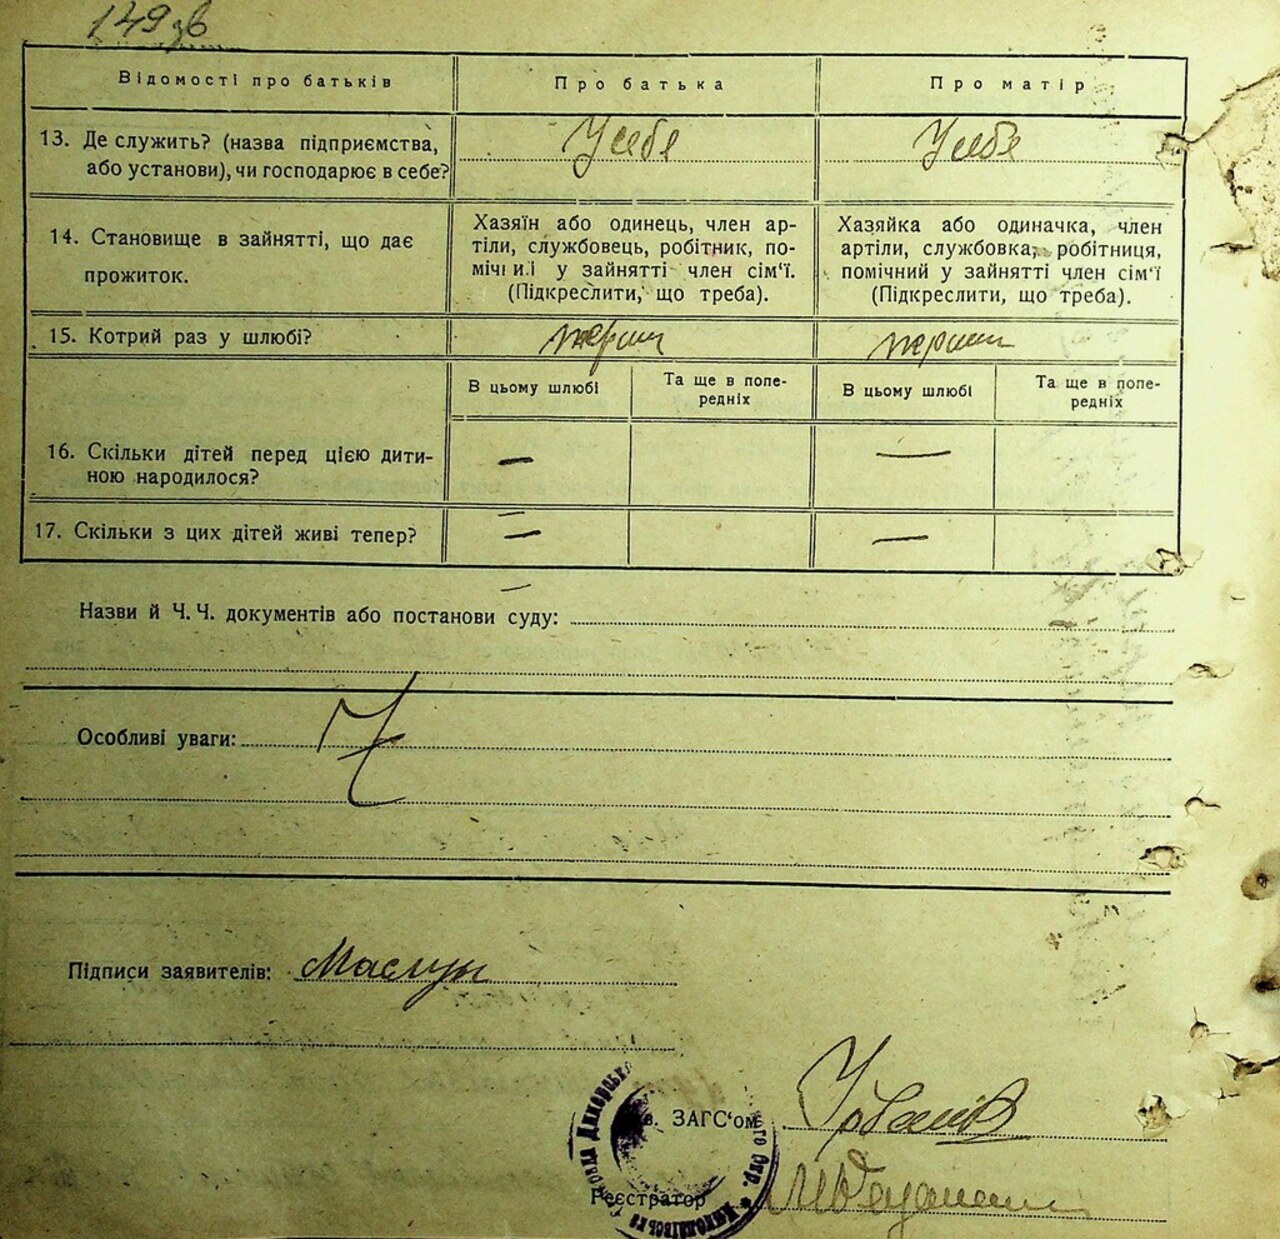 149 зв
Відомості про батьків
Про батька
Про матір
13. Де служить? (назва підприємства,
або установи), чи господарює в себе?
У себе
У себе
14. Становище в зайнятті, що дає
прожиток.
Хазяїн або одинець, член ар-
тіли, службовець, робітник, по-
мічний у зайнятті член сім'ї.
(Підкреслити, що треба).
Хазяйка або одиначка, член
артіли, службовка, робітниця,
помічний у зайнятті член сім'ї
(Підкреслити, що треба).
15. Котрий раз у шлюбі?
перший
перший
В цьому шлюбі
Та ще в попе-
редніх
В цьому шлюбі
Та ще в попе-
редніх
16. Скільки дітей перед цією дити-
ною народилося?
—
—
17. Скільки з цих дітей живі тепер?
—
—
Назви й Ч. Ч. документів або постанови суду:
Особливі уваги:
Підписи заявителів:
в. ЗАГС'ом
Реєстратор